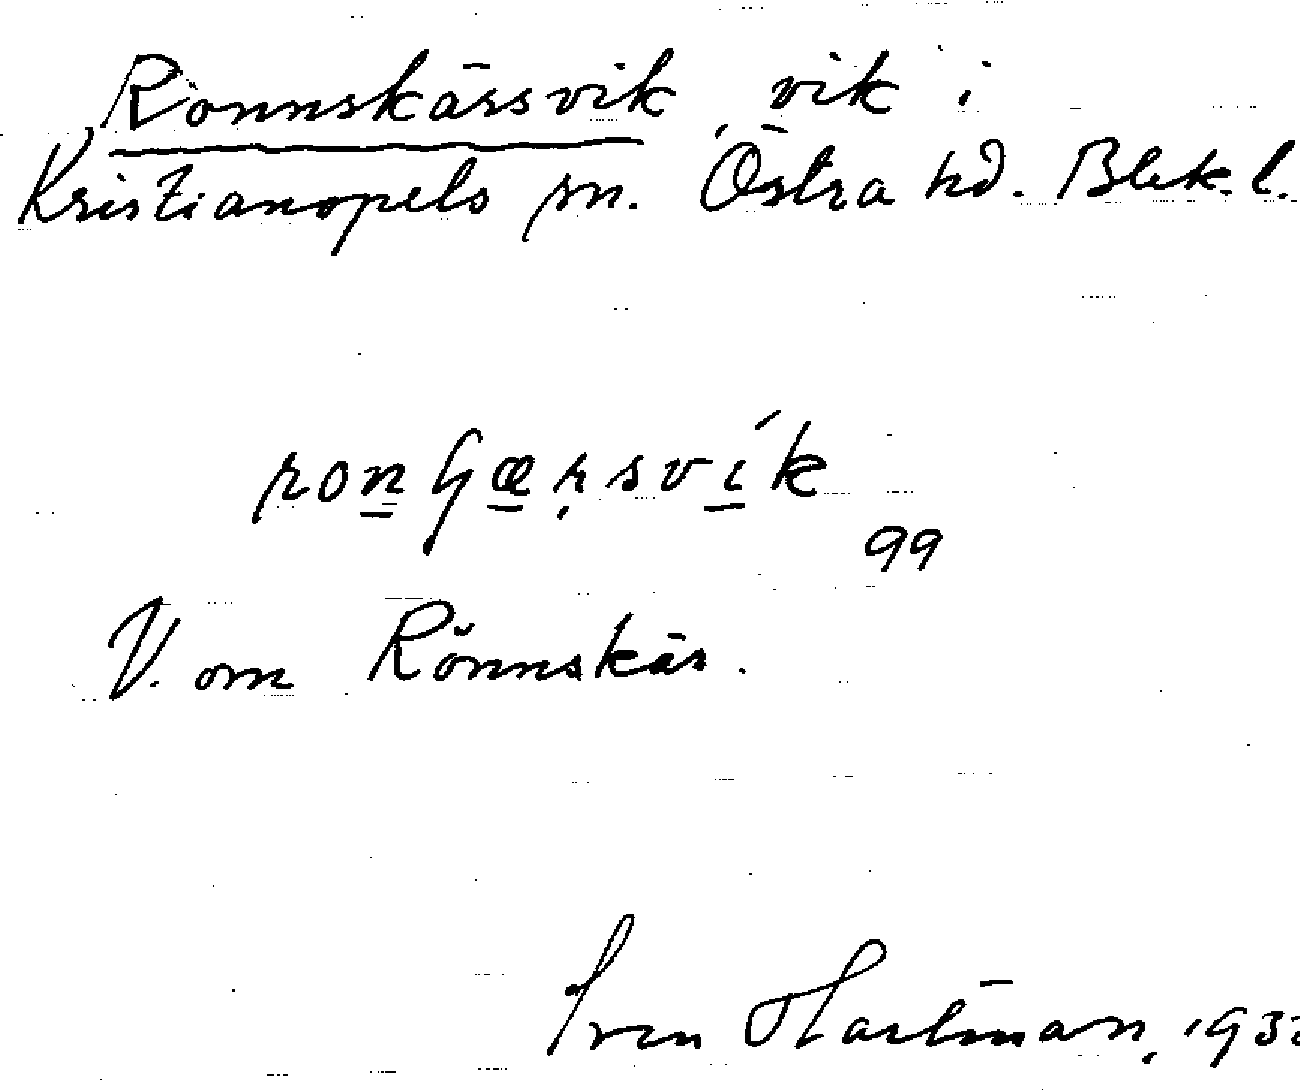 Rönnskärsvik, vik i
Kristianopels sn. Östra hd. Blek. l.
99
V. om Rönnskär.
Sven Hartman, 193